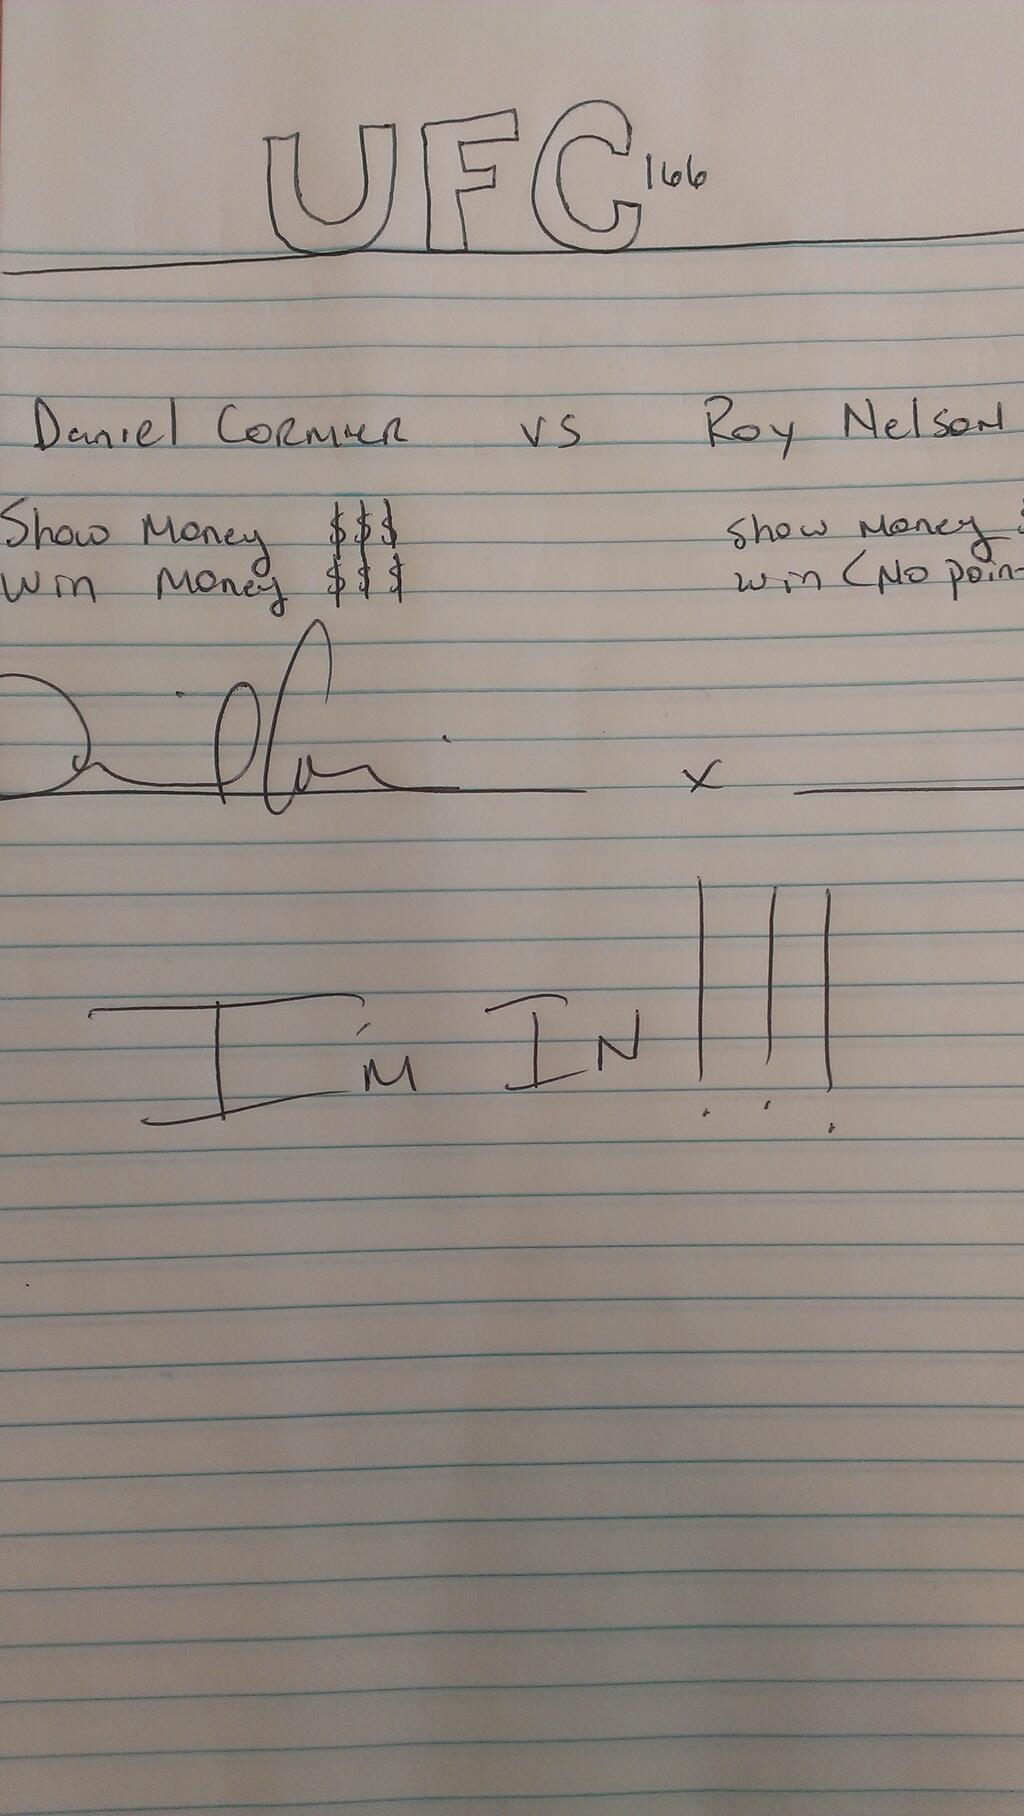 UFC 166
Daniel Cormier vs Roy Nelson
Show Money $$$ show Money $
Win Money $$$ win (No poin
Daniel Cormier x
I'm In!!!